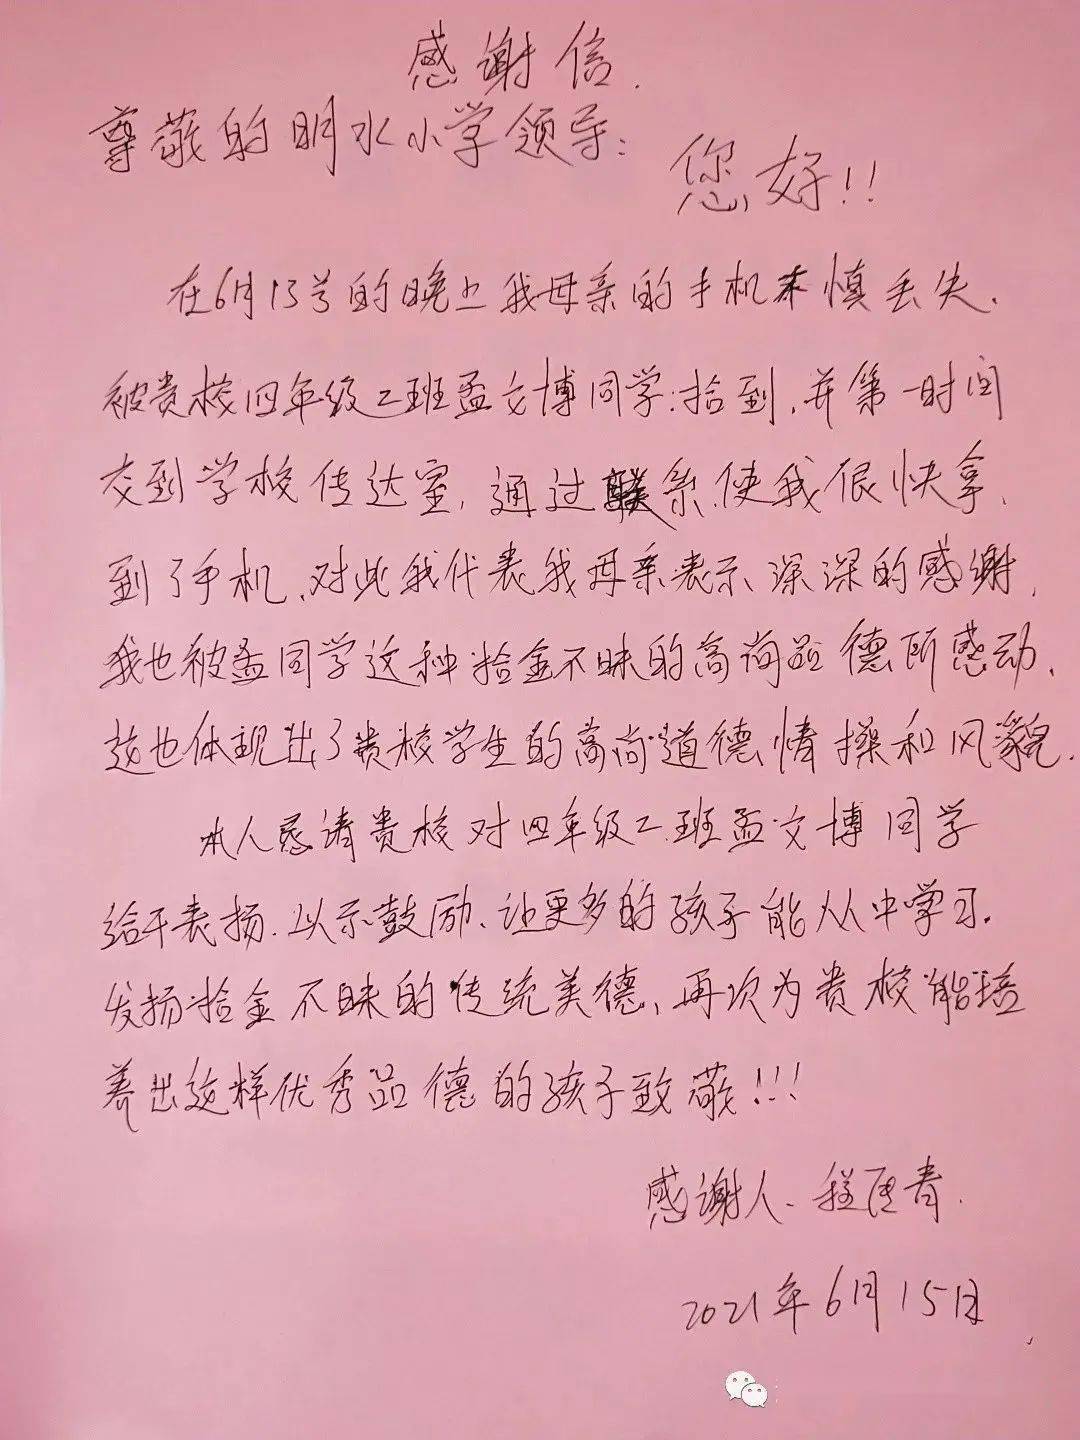 感谢信.
尊敬的明水小学领导:
您好!!
在6月13号的晚上我母亲的手机不慎丢失.
被贵校四年级二班孟文博同学.拾到,并第一时间
交到学校传达室,通过联系.使我很快拿.
到了手机.对此我代表我母亲表示深深的感谢.
我也被孟同学这种拾金不昧的高尚品德所感动.
这也体现出了贵校学生的高尚道德情操和风貌.
本人恳请贵校对四年级二班孟文博同学
给予表扬.以示鼓励、让更多的孩子能从中学习.
发扬拾金不昧的传统美德、再次为贵校能培
养出这样优秀品德的孩子致敬!!!
感谢人、程 青.
2021年6月15日